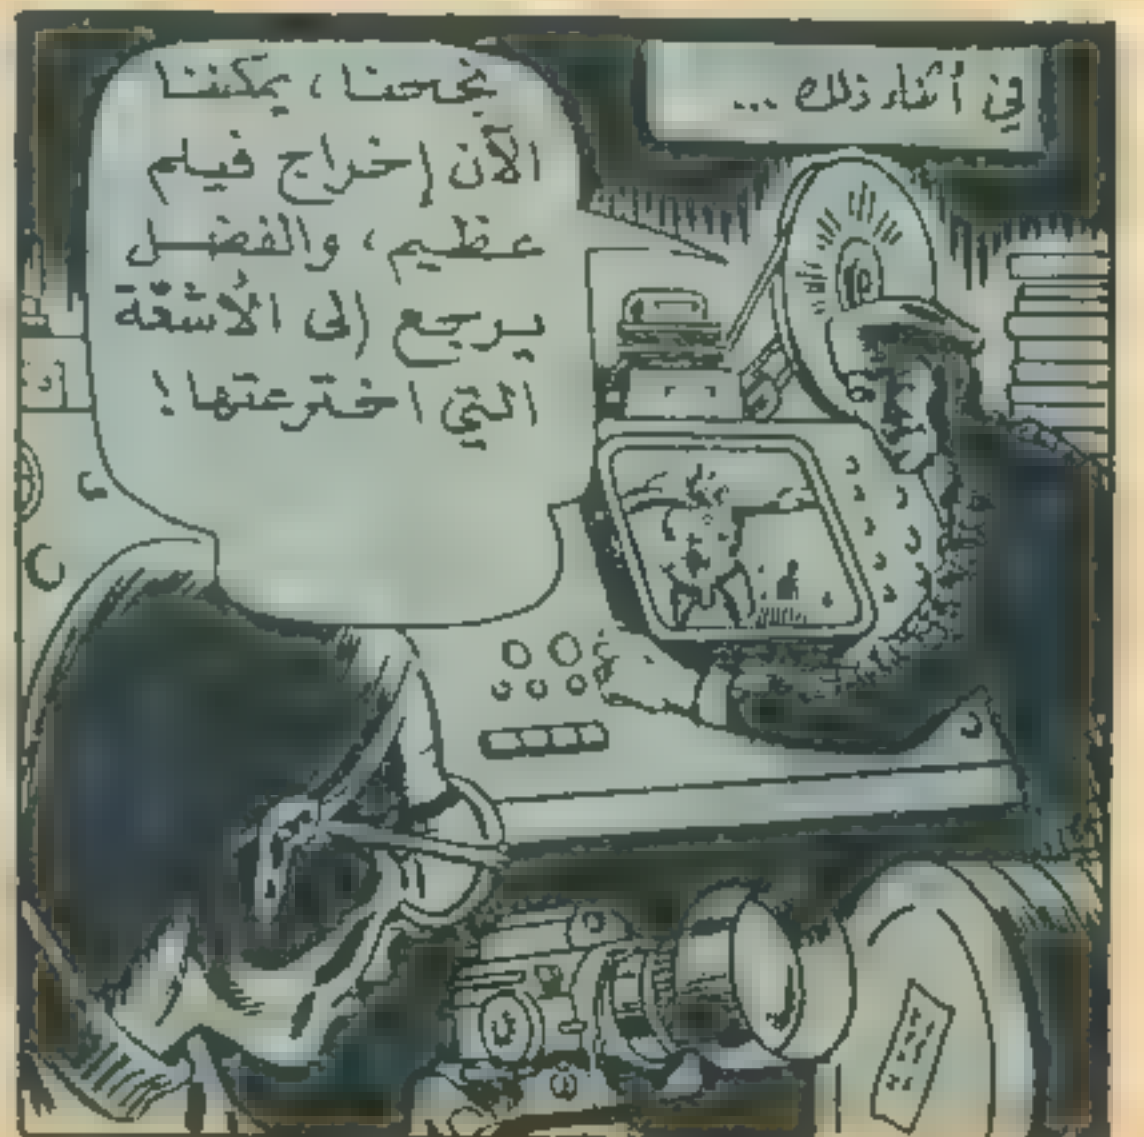 في أثناء ذلك ...
نجحنا ، يمكننا
الآن إخراج فيلم
عظيم ، والفضل
يرجع إلى الأشعّة
التي اخترعتها !